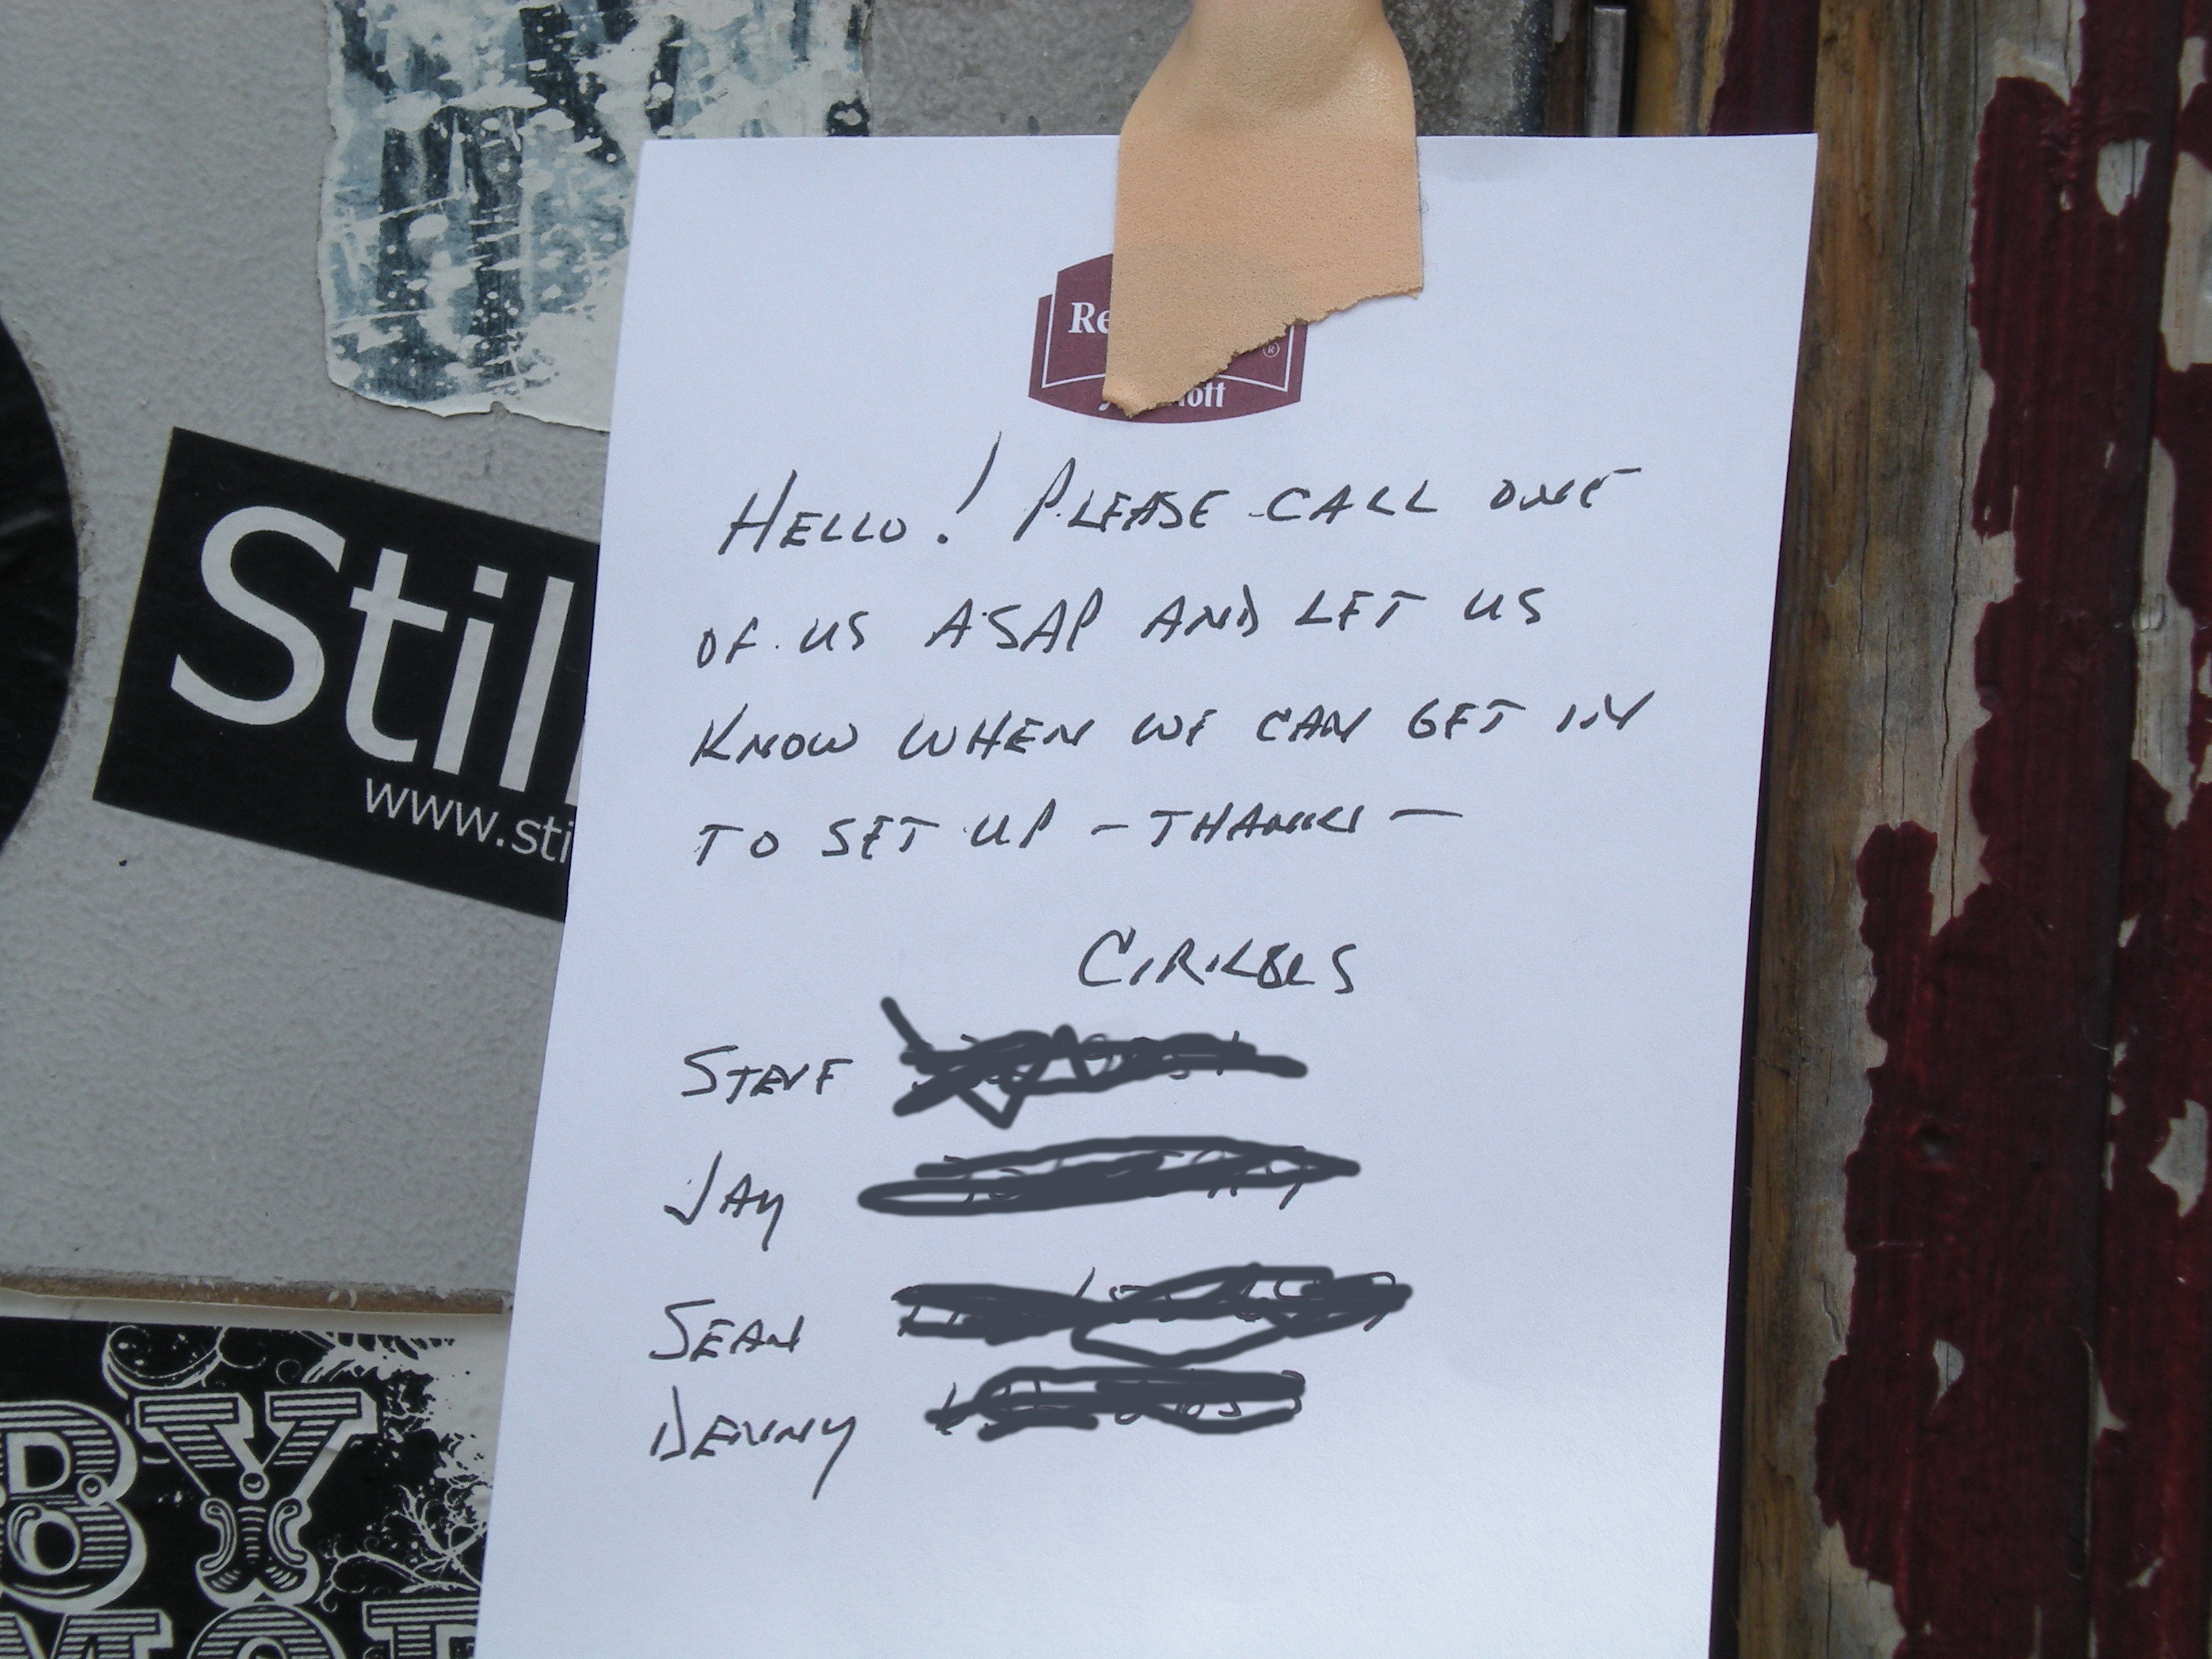 Re
®
ott
HELLO! PLEASE CALL ONE
OF US ASAP AND LET US
KNOW WHEN WE CAN GET IN
TO SET UP - THANKS -
STEVE
JAY
SEAN
DENNY
Still
www.sti
BY